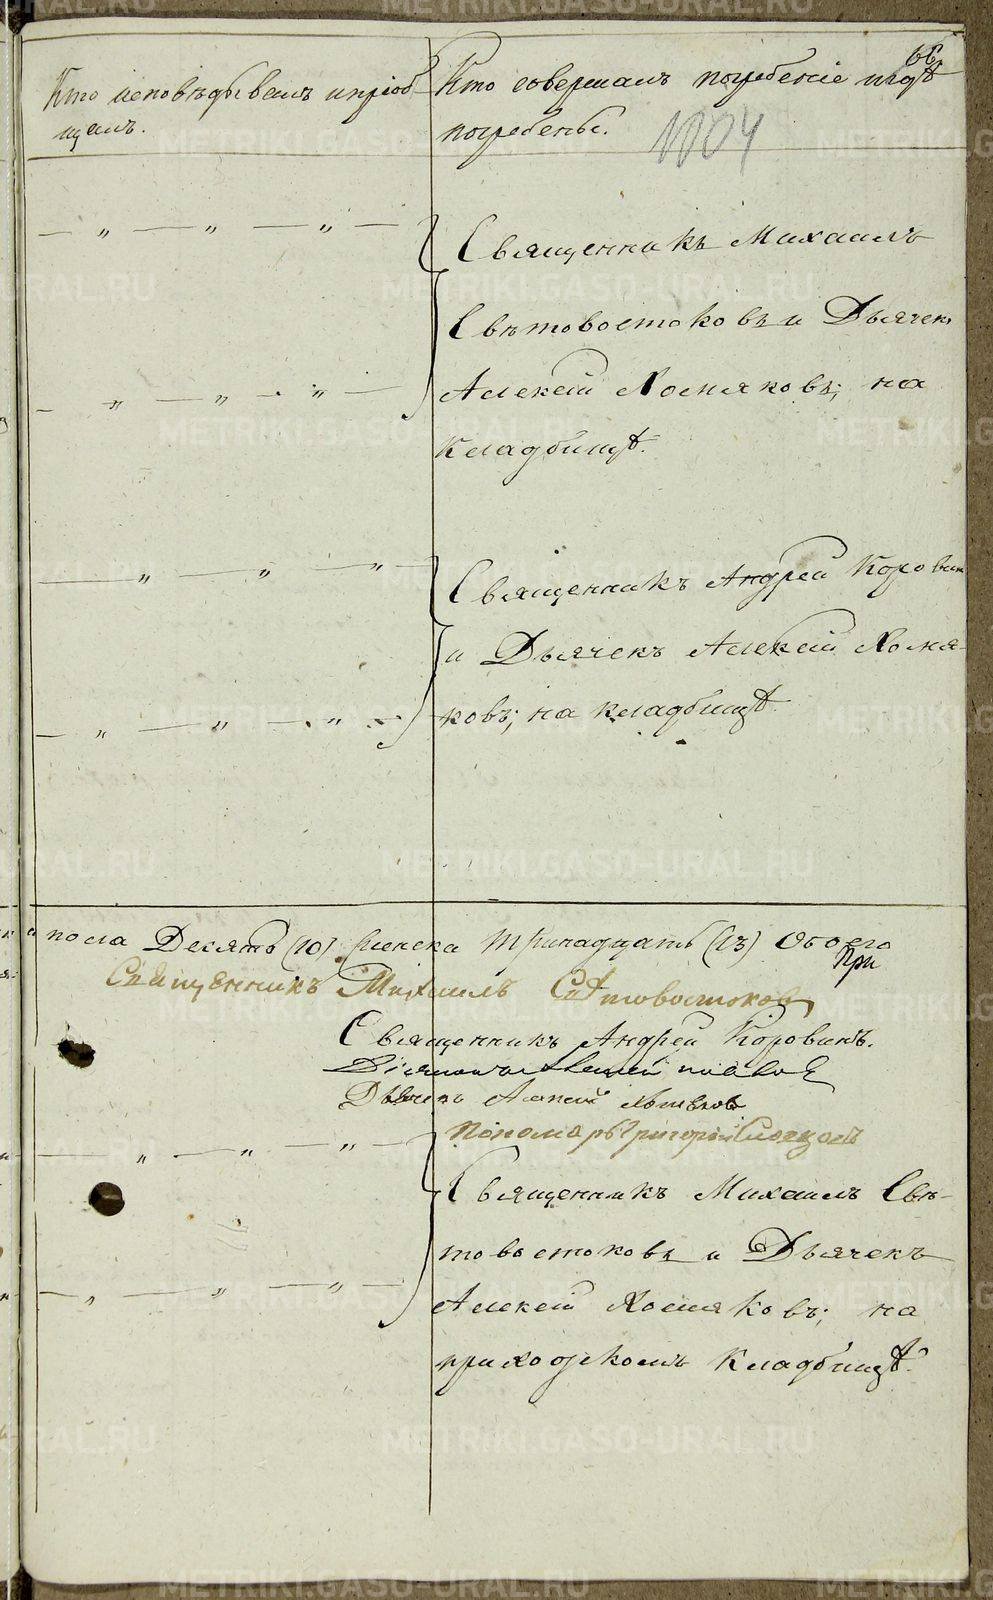 66.
Кто исповѣдывалъ и пріоб
щалъ.
Кто совершалъ погребеніе и гдѣ
погребены.
1104
Священникъ Михаилъ
Свѣтовостоковъ и Дьячекъ
Алексѣй Хомяковъ; на
Кладбищѣ.
Священникъ Андрей Коровин
и Дьячекъ Алексѣй Хомя-
ковъ; на кладбищѣ.
пола Десять (10) Женска Тринадцать (13) Обоего
При
Священникъ Михаилъ Свѣтовостоковъ
Священникъ Андрей Коровинъ.
Дьячекъ Алексѣй Хомяковъ
Пономарь Григорій
Священникъ Михаилъ Свѣ-
товостоковъ и Дьячекъ
Алексѣй Хомяковъ; на
приходскомъ Кладбищѣ.
METRIKI.GASO-URAL.RU